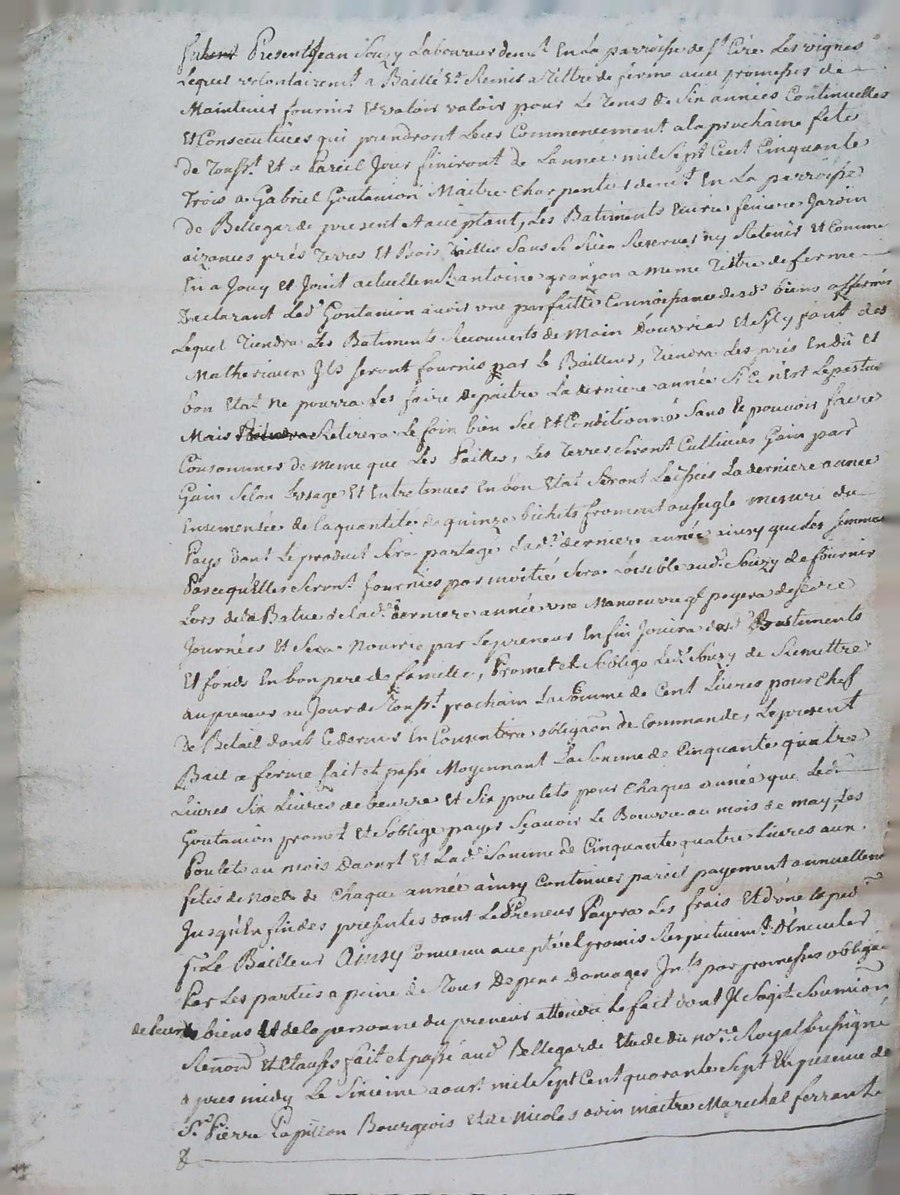 Present Jean Souzy Laboureur demt En La parroisse de st Cire Les vignes
Lequel volontairemt a Baillé Et Remis a Tiltre de ferme avec promesses de
Maintenir fournir Et valoir valoir pour Le Tems de Six années Continuelles
Et Consecutives qui prendront Leur Commencement a la prochaine fete
de Toussts Et a Pareil Jour finiront de Lannée mil Sept Cent Cinquante
Trois a Gabriel Goutanion Maitre Charpentier demt En La parroisse
de Bellegarde present Et acceptant, Les Batiments Jardin
aizances prés Terres Et Bois Taillis Sans Se Rien Reserver ny Retenir Et Comme
En a Jouy Et Jouit actuellemt antoine granjon a meme Tiltre de ferme
Declarant Ledt Goutanion avoir une parfaitte Connoissance desdts biens affermés
Lequel Tiendra Les Batiments Recouverts de Main Douvrier Et Sily faut des
Matheriaux Ils Seront fournis par le Bailleur, Tiendra Les prés En dû Et
bon Etat ne pourra Les faire depaitre La derniere année Si Ce n'Est
Mais Retirera Le foin bien Sec Et Conditionné Sans le pouvoir faire
Consommer de meme que Les Pailles, Les Terres Seront Cultivées Gain par
Gain Selon Lusage Et Entretenues En bon Etat Seront Laissées La derniere année
Ensemencée de la quantité de quinze bichets froment ou seigle mesure du
Pays dont Le produit Sera partagé Ladt derniere année ainsy que Les
Parcequ'Elles Seront fournies par moitié Sera Loisible audt Souzy de fournir
Lors de la Batue de Ladt derniere année une Manoeuvre ql payera de Ses
Journées Et Sera Nourrie par Le preneur Enfin Jouira desdts Bastiments
Et fonds En bon pere de famille, Promet Et Soblige Ledt Souzy de Remettre
au preneur au Jour de Toussts prochain La Somme de Cent Livres pour Chef
de Betail dont Ce dernier En Consentira obligaõn de Commande, Le present
Bail a ferme fait et passé Moyennant La Somme de Cinquante quatre
Livres Six Livres de beurre Et Six poulets pour Chaque année que Ledt
Goutanion promet Et Soblige payer Sçavoir Le Beurre au mois de may, Les
Poulets au mois Daoust Et Ladt Somme de Cinquante quatre Livres aux
fetes de Noel de Chaque année ainsy Continuer pareil payement annuellemt
Jusqu'En fin des presentes dont Le Preneur Payera Les frais Et
Le Bailleur Ainsy Convenu accepté et promis Respectivemt
Par Les parties a peine de Tous Depens Damages Jnts par promesses obligaõn
de leurs biens Et de la personne du preneur attendu Le fait dont Jl Sagit Soumions
Renonõn Et Clauses fait et passé audt Bellegarde Etude du nore Royal Soussigné
apres midy Le Sixieme aoust mil Sept Cent quarante Sept En presence de
Sr Pierre Papillon Bourgeois Et de Nicolas maitre Marechal ferrant